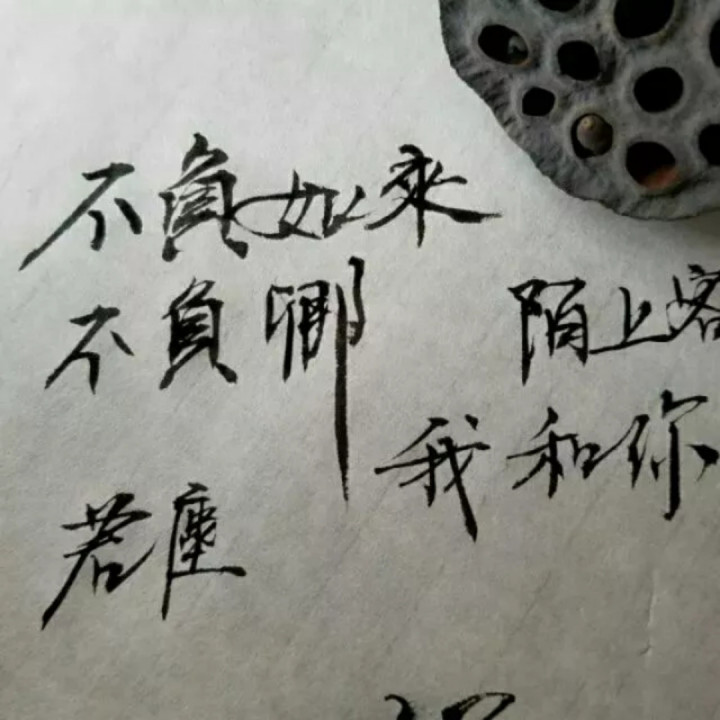 不負如来
不負卿
陌上客
我和你
若塵